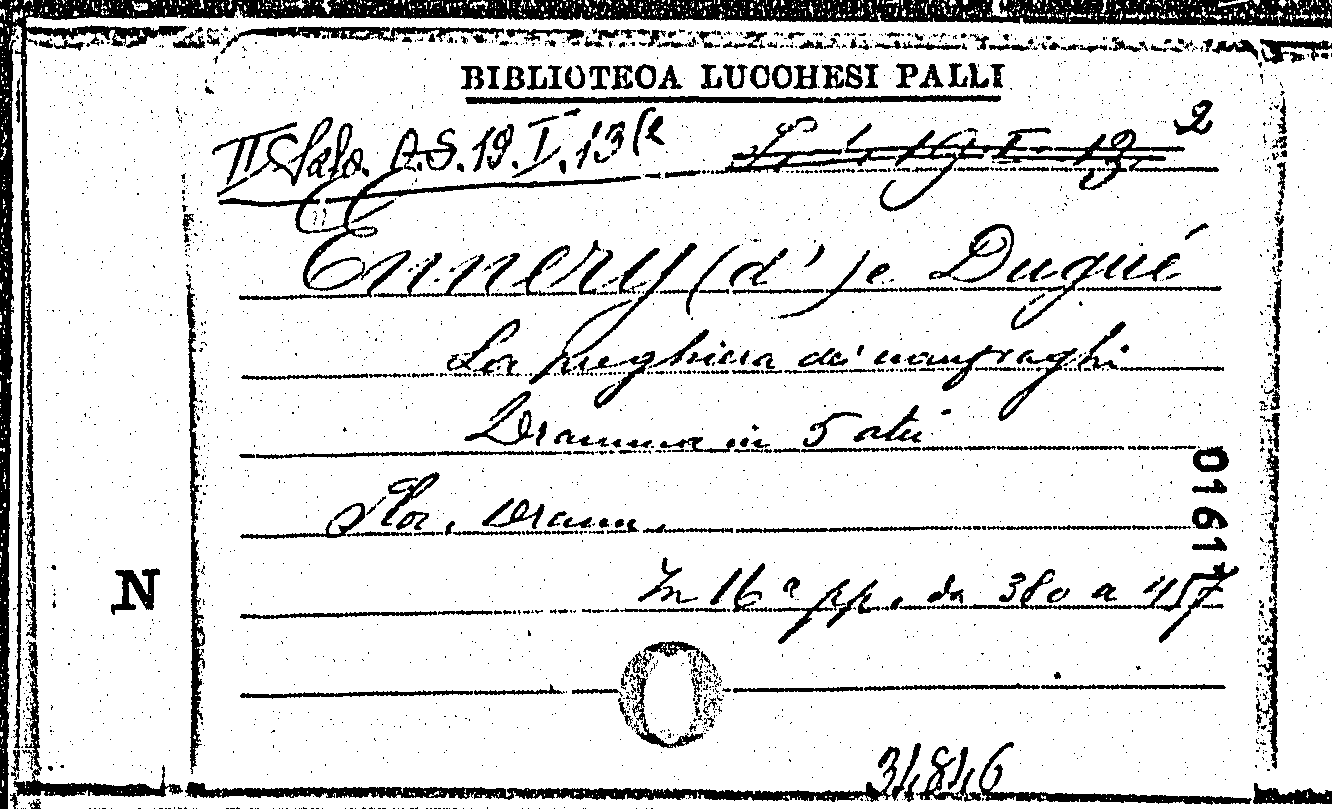 BIBLIOTECA LUCCHESI PALLI
II Sala. C.S. 19. I. 13(2 19. I. 13. 2
Ennery (d') e Dugué
La preghiera dei naufraghi
Dramma in 5 atti
Flor. Dramm.
01617
In 16° pp. da 380 a 457
N
34846